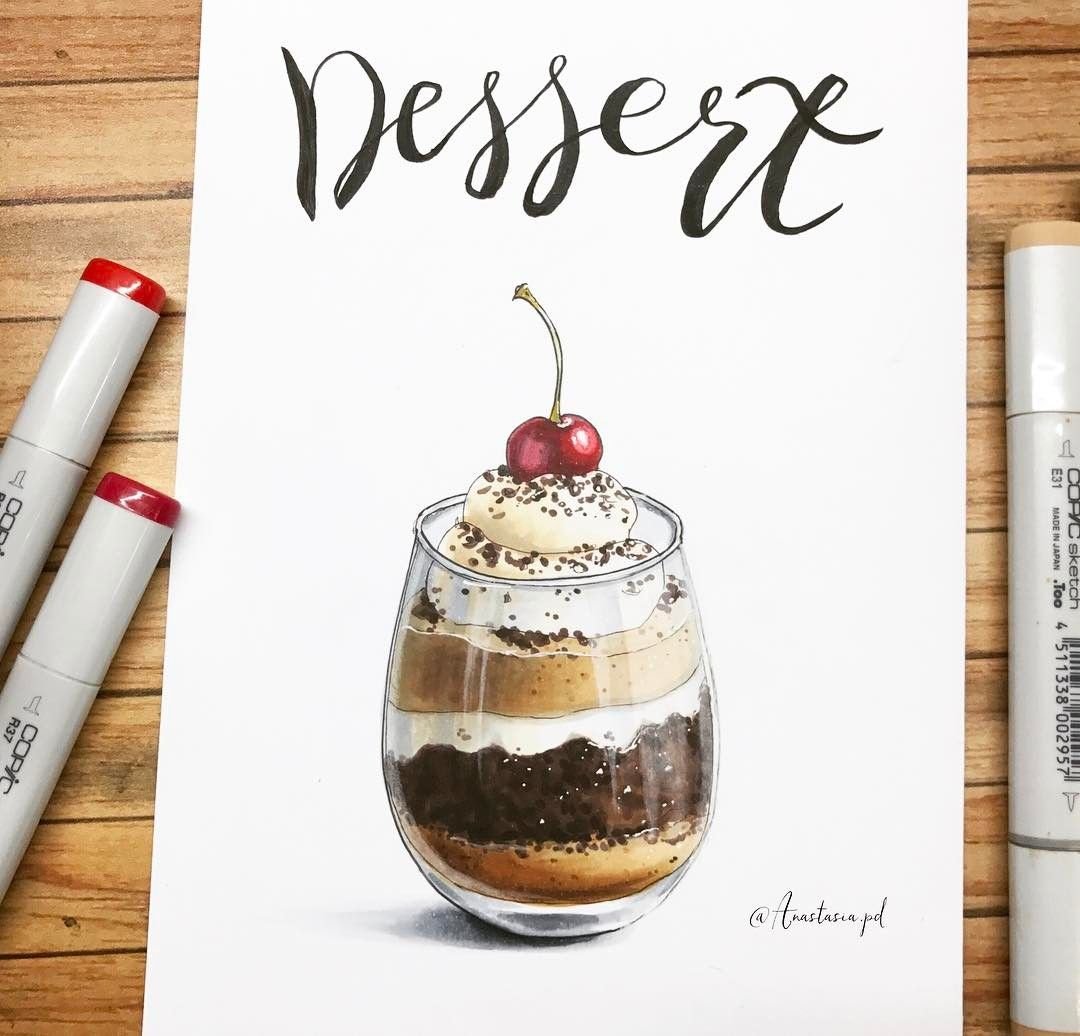 Dessert
COPIC
COPIC
R37
COPIC sketch
E31
MADE IN JAPAN
.Too
4 511338 002957
@Anastasia.pd